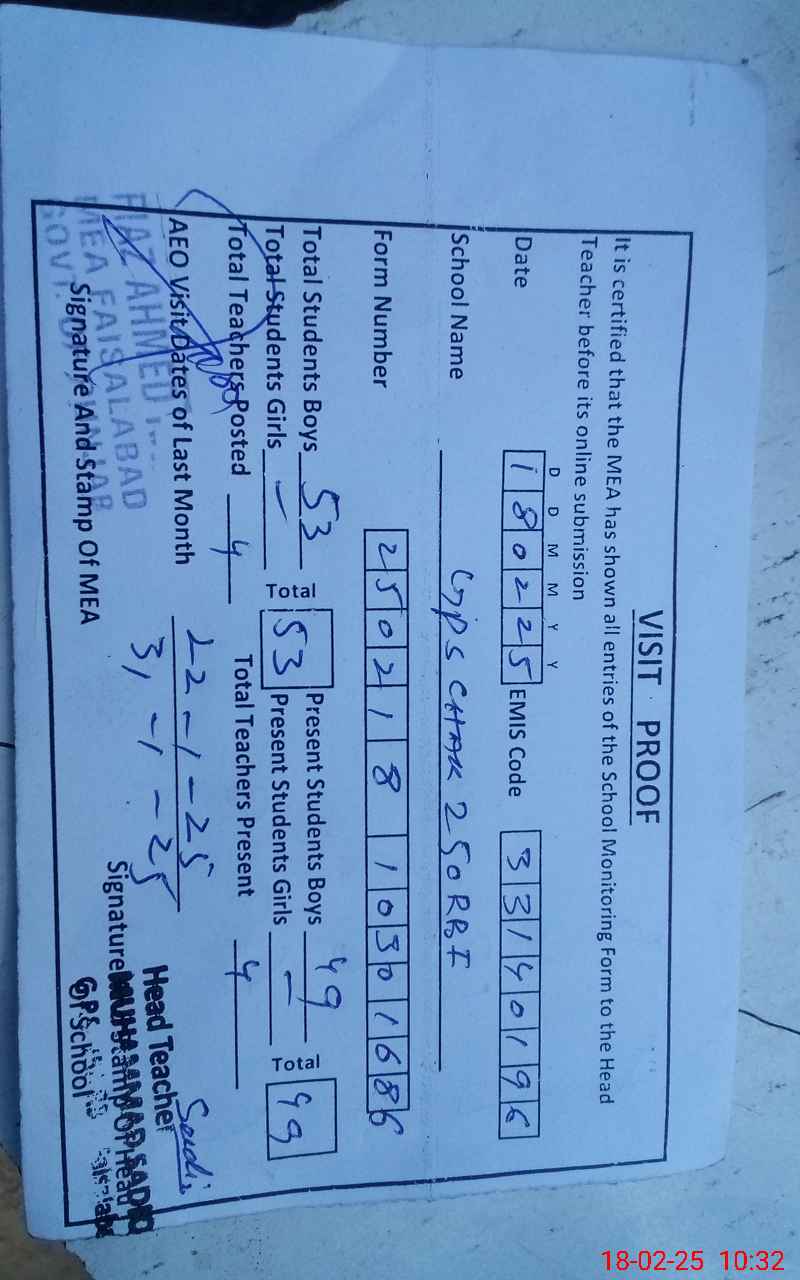 VISIT PROOF
It is certified that the MEA has shown all entries of the School Monitoring Form to the Head
Teacher before its online submission
D D M M Y Y
Date 1 8 0 2 2 5 EMIS Code 3 3 1 4 0 1 9 6
School Name GPS CHAK 250RB I
Form Number 2 5 0 2 1 8 1 0 3 0 1 6 8 6
Total Students Boys 53 Total 53 Present Students Boys 49 Total 49
Total Students Girls — Present Students Girls —
Total Teachers Posted 4 Total Teachers Present 4
AEO Visit Dates of Last Month 22-1-25
31-1-25
RIAZ AHMED
MEA FAISALABAD
GOVT.
Signature And Stamp Of MEA
Head Teacher
MUHAMMAD SADIQ
Signature Stamp Of Head
GPS
School
18-02-25 10:32